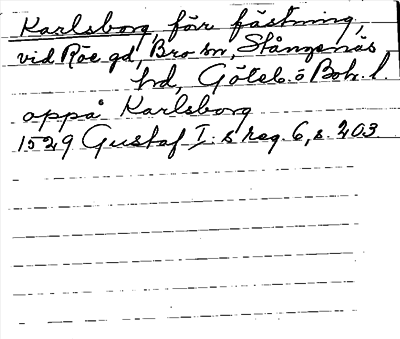 Karlsborg, för fästning,
vid Röe gd, Bro sn, Stångenäs
hd, Göteb. o Boh. l.
oppå Karlsborg
1529 Gustaf I:s reg. 6, s. 203.